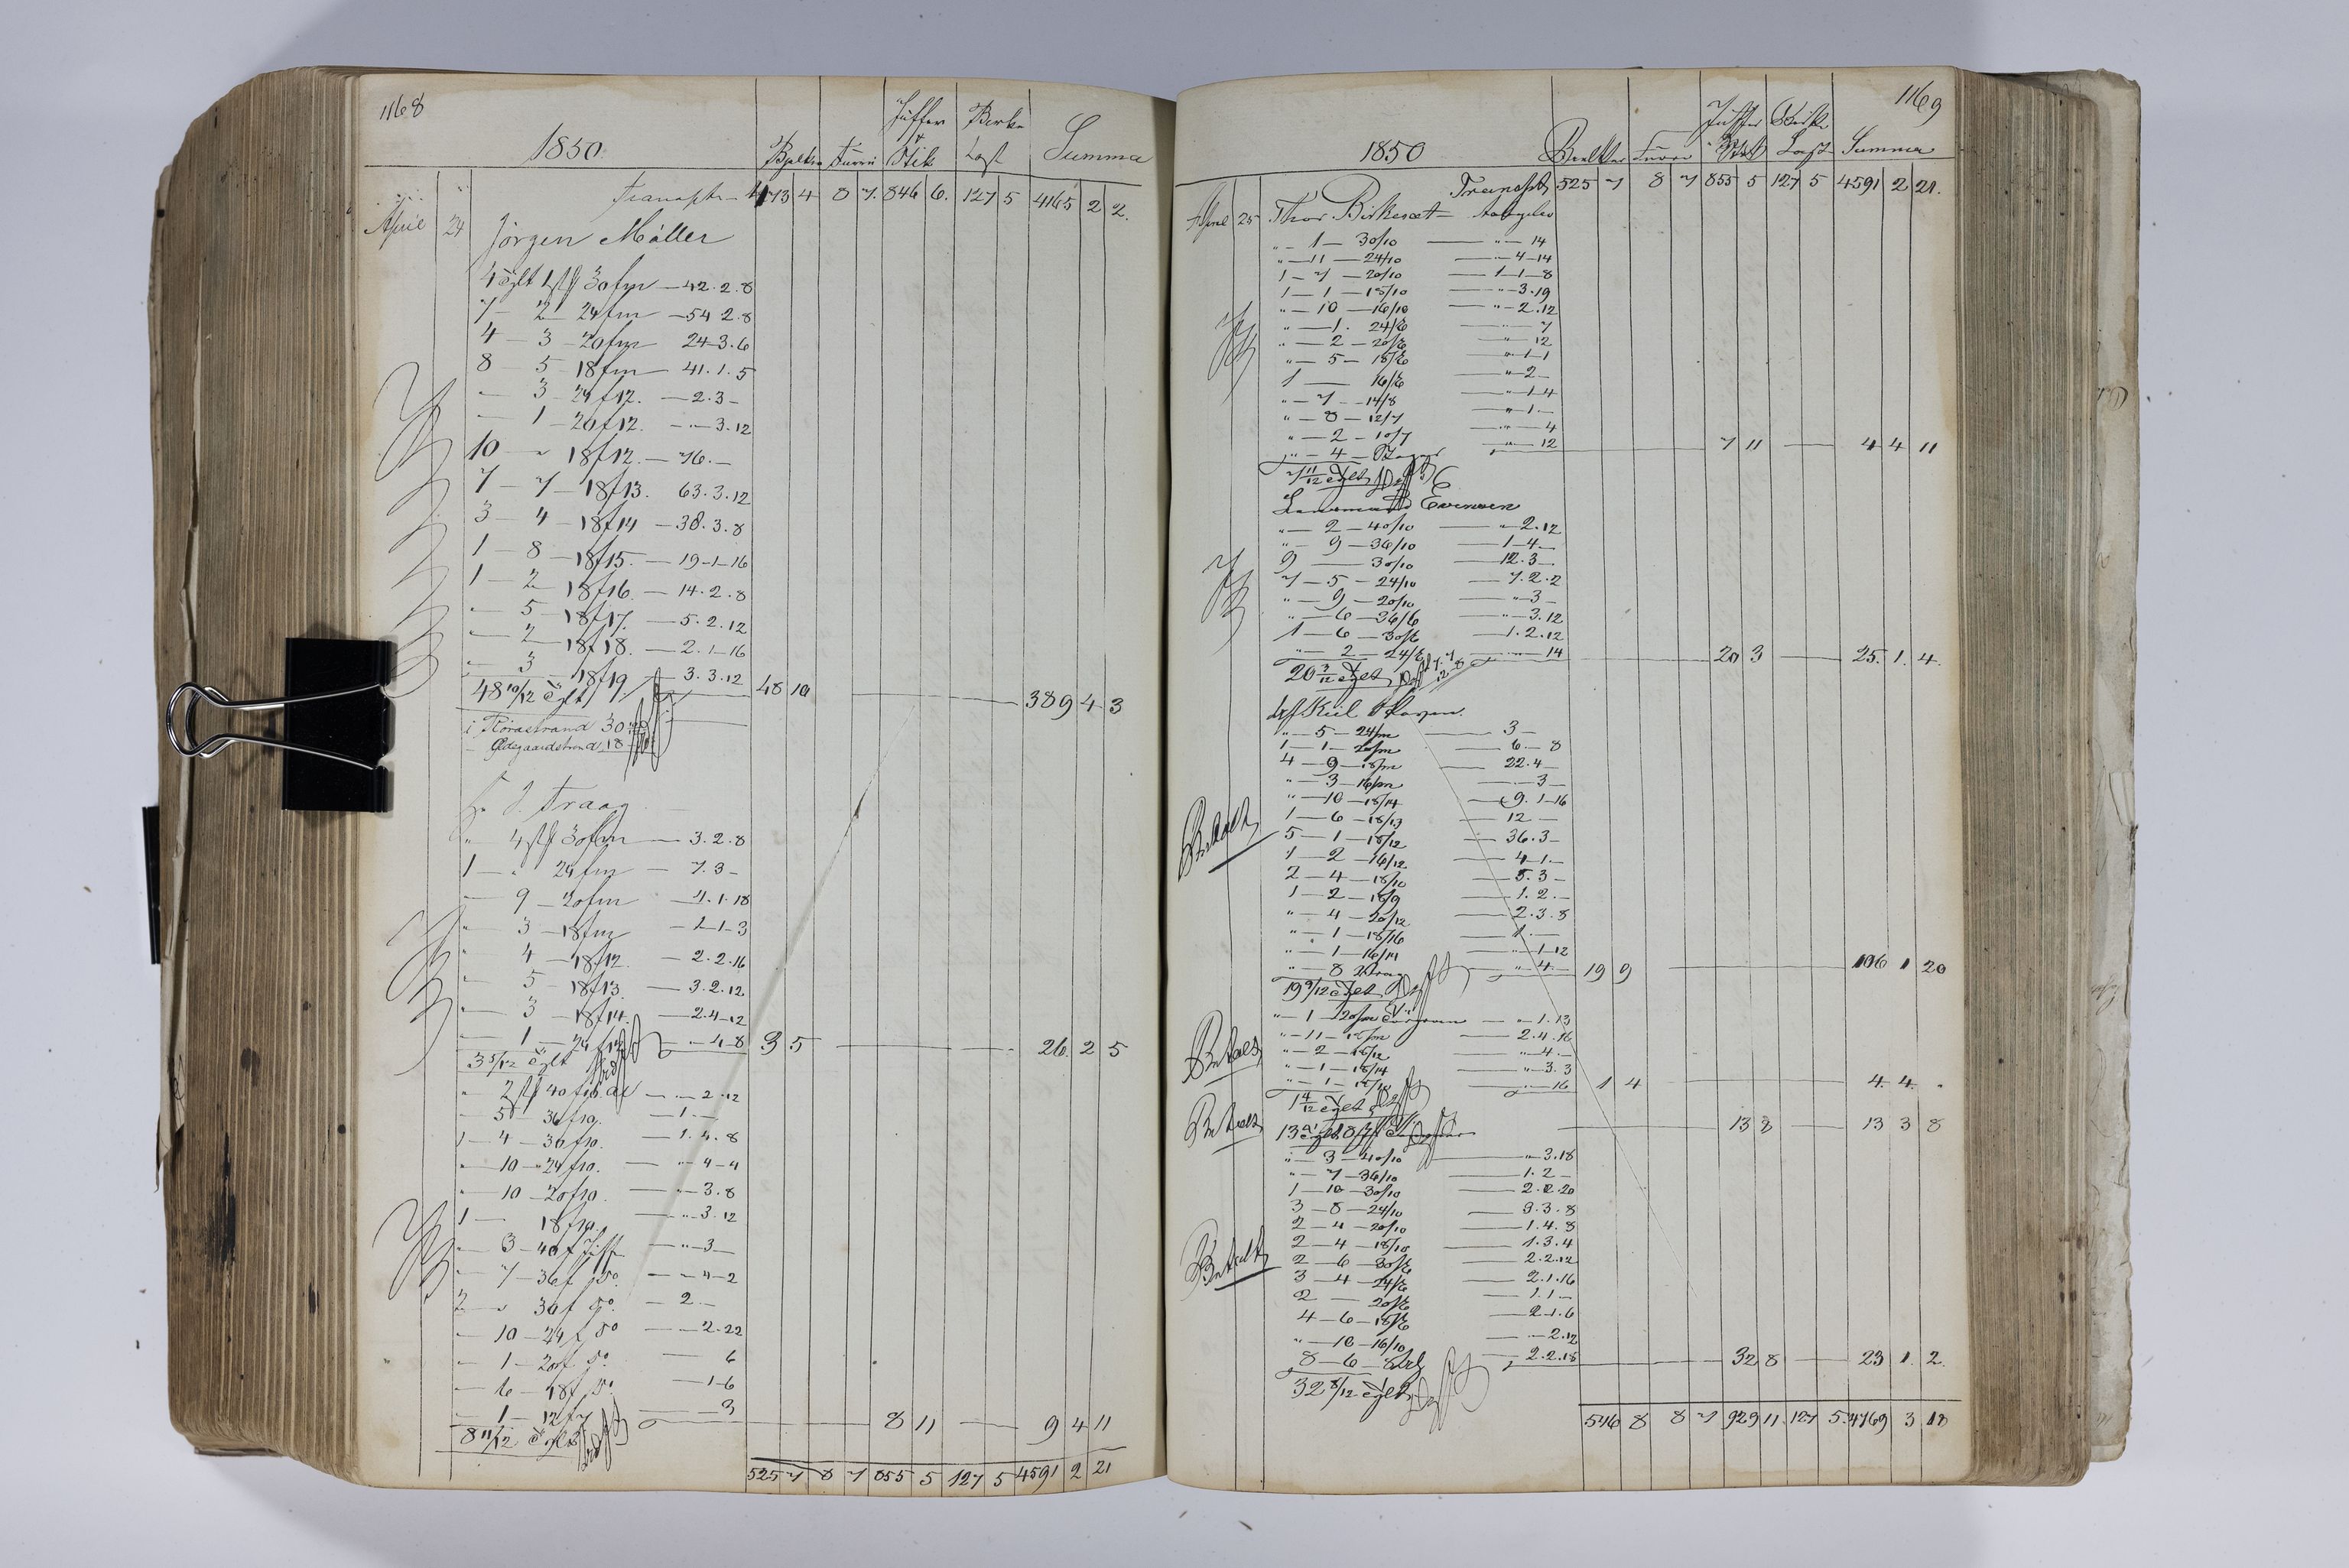 1168
1850
Bjelker Furru Juffer & Stik Birke Last Summa
Transpt 473 4 8 7 846 6 127 5 4165 2 2
April 24 Jörgen Möller
4 Tylt 1 st 30 fm — 42.2.8
7 — 2 — 24 fm — 54 2.8
4 — 3 — 20 fm — 24.3.6
8 — 5 — 18 fm — 41.1.5
" — 3 — 24 f 12. — 2.3 —
" — 1 — 20 f 12. — " — 3.12
10 — " 18 f 12. — 76. —
7 — 7 — 18 f 13. 63.3.12
3 — 4 — 18 f 14 — 38.3.8
1 — 8 — 18 f 15. — 19-1-16
1 — 2 — 18 f 16. — 14.2.8
" — 5 — 18 f 17. — 5.2.12
" — 2 — 18 f 18. — 2.1-16
" — 3 — 18 f 19. — 3.3.12
48 10/12 Tylt 48 10 389 4 3
i Rörastrand 30
Ödegaardstrand 18
J. Traag
" 4 st 30 fm — 3.2.8
1 — " 24 fm — 7.3 —
" — 9 — 20 fm — 4.1.18
" — 3 — 18 fm — 1-1-3
" — 4 — 18 f 12. — 2.2.16
" — 5 — 18 f 13. — 3.2.12
" — 3 — 18 f 14. — 2.4-12
" — 1 — 24 f 12 — " — 4.8
3 5/12 Tylt 3 5 26 2 5
" 2 st 40 f 10 al — " — 2.12
" — 5 — 36 f 10. — 1. —
1 — 4 — 30 f 10. — 1.4.8
" — 10 — 24 f 10. — " — 4-4
" — 10 — 20 f 10. — " — 3.8
1 — 18 f 10. — " — 3.12
" — 3 — 40 f Juff — " — 3 —
" — 7 — 36 f do. — " — 4-2
2 — " 30 f do. — 2. —
" — 10 — 24 f do — " — 2.22
" — 1 — 20 f do. — 6
" — 6 — 18 f do. — 1-6
" — 1 — 12 f 7 — 3
8 11/12 Tylt 8 11 9 4 11
525 7 8 7 855 5 127 5 4591 2 21
1169
1850
Bielker Furru Juffer Stik Birke Last Summa
Transpt 525 7 8 7 855 5 127 5 4591 2 21.
April 25 Thor Birkesæt
" — 1 — 30/10 — " — 14
" — 11 — 24/10 — " 4-14
1 — 7 — 20/10 — 1-1-8
1 — 1 — 18/10 — " — 3.19
" — 10 — 16/10 — " — 2.12
" — 1. 24/6 — 7
" — 2 — 20/6 — " — 12
" — 5 — 18/6 — " 1-1
1 — 16/6 — " — 2 —
" — 7 — 14/8 — " — 1-4
" — 8 — 12/7 — " 1. —
" — 2 — 10/7 — " — 4
" — 4 — — " — 12 7 11 4 4 11
7 11/12 Tylt
Lensmand Evensen
" — 2 — 40/10 — " 2.12
" — 9 — 36/10 — 1-4 —
9 — 30/10 — 12.3 —
7 — 5 — 24/10 — 7.2.2
" — 9 — 20/10 — " — 3 —
" — 6 — 36/6 — " — 3.12
1 — 6 — 30/6 — 1.2.12
" — 2 — 24/6 — " — 14 20 3 25. 1. 4.
20 3/12 Tylt
Kiil
" — 5 — 24/m — 3 —
1 — 1 — 20/m — 6 — 8
4 — 9 — 18/m — 22.4 —
" — 3 — 16/m — 3 —
" — 10 — 18/14 — 9. 1-16
1 — 6 — 18/13 — 12 —
Betalt 5 — 1 — 18/12 — 36.3 —
1 — 2 — 16/12 — 4-1. —
2 — 4 — 18/10 — 5.3 —
1 — 2 — 16/9 — 1.2. —
" — 4 — 20/12 — 2.3.8
" — 1 — 18/16 — 1. —
" — 1 — 16/14 — " 1-12
" — 8 — " 4. — 19 9 106 1 20
19 9/12 Tylt
" — 1 — 20/m — " — 1.13
" — 11 — 18/m — 2.4.16
Betalt " — 2 — 18/12 — " 4. —
" — 1 — 18/14 — " — 3.3
" — 1 — 18/10 — " — 16 1 4 4. 4. "
1 4/12 Tylt
Betalt 13 Tylt 8 st 13 8 13 3 8
" — 3 — 40/10 — " 3.18
" — 7 — 36/10 — 1.2 —
1 — 10 — 30/10 — 2.2.20
3 — 8 — 24/10 — 3.3.8
2 — 4 — 20/10 — 1.4.8
2 — 4 — 18/10 — 1.3.4
Betalt 2 — 6 — 30/6 — 2.2.12
3 — 4 — 24/6 — 2.1.16
2 — 20/6 — 1.1 —
4 — 6 — 18/6 — 2-1.6
" — 10 — 16/10 — " — 2.12
8 — 6 — — 2.2.18 32 8 23 1. 2.
32 8/12 Tylt
546 8 8 7 929 11. 127 5. 4769 3 18